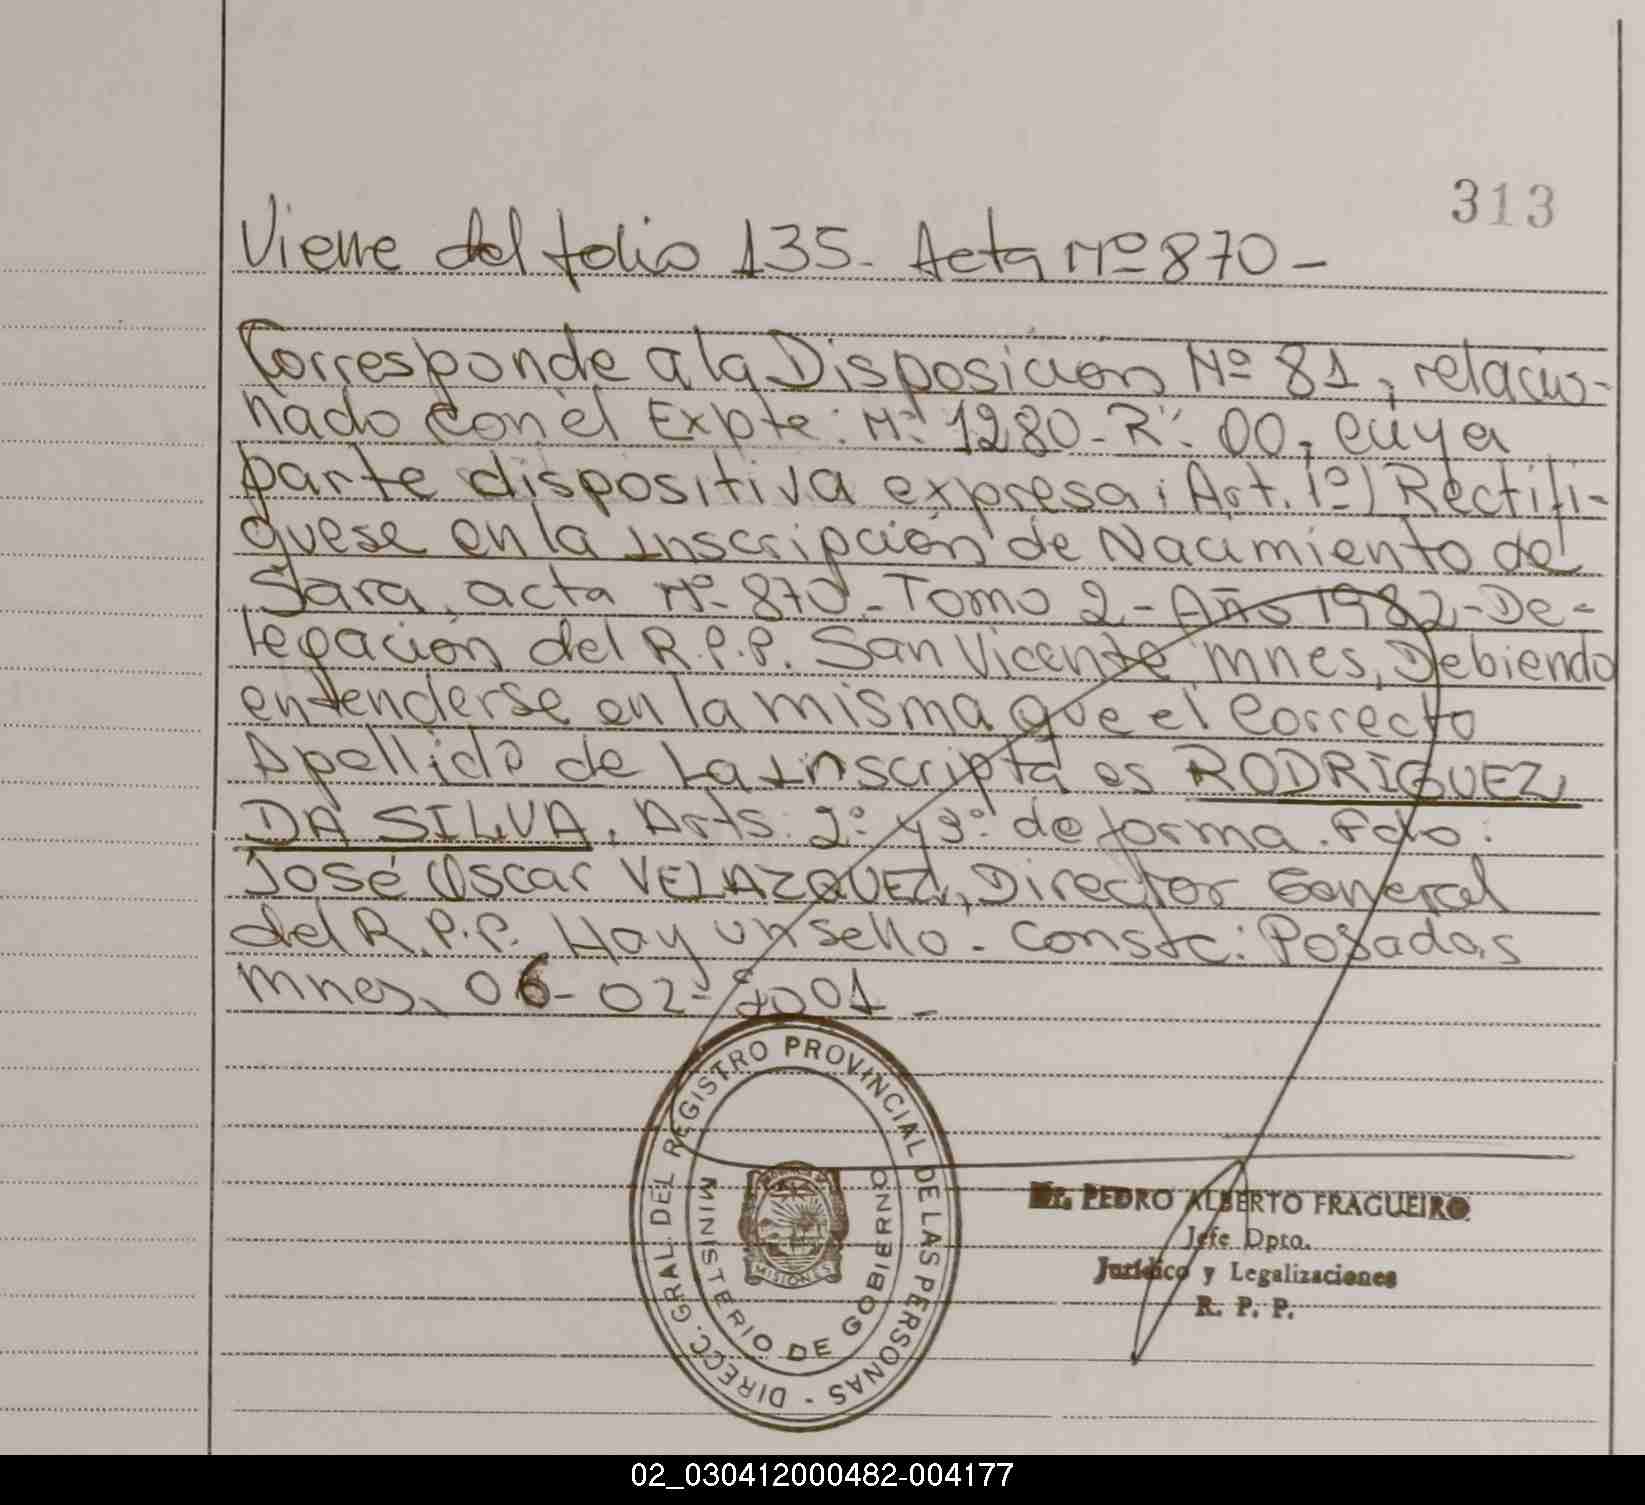 313
Viene del folio 135- Acta Nº 870-
Corresponde a la Disposición Nº 81, relacio-
nado con el Expte: Nº 1280-R'- 00, cuya
parte dispositiva expresa: Art. 1º) Rectifi-
quese en la inscripción de Nacimiento de
Sara, acta Nº 870-Tomo 2-Año 1982-De-
legación del R.P.P. San Vicente mnes, Debiendo
entenderse en la misma que el Correcto
Apellido de La inscripta es RODRIGUEZ
DA SILVA, Arts. 2º y 3º de forma. Fdo:
José Oscar VELAZQUEZ, Director General
del R.P.P. Hay un sello- Constc: Posadas
mnes, 06-02-2001-
DIRECC. GRAL. DEL REGISTRO PROVINCIAL DE LAS PERSONAS -
MINISTERIO DE GOBIERNO
MISIONES
Dr. PEDRO ALBERTO FRAGUEIRO
Jefe Dpto.
Jurídico y Legalizaciones
R. P. P.
02_030412000482-004177